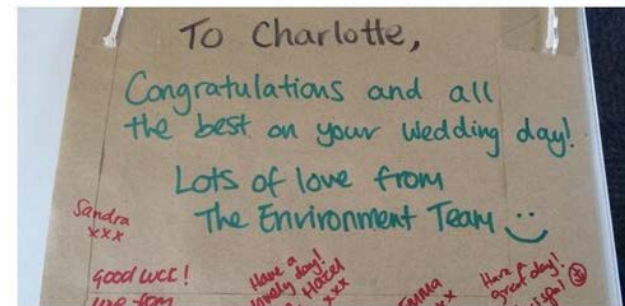 To Charlotte,
Congratulations and all
the best on your wedding day!
Lots of love from
The Environment Team
Sandra
xxx
good luck!
Have a
lovely day!
Hazel
xxx
Emma
xx
Have a
great day!